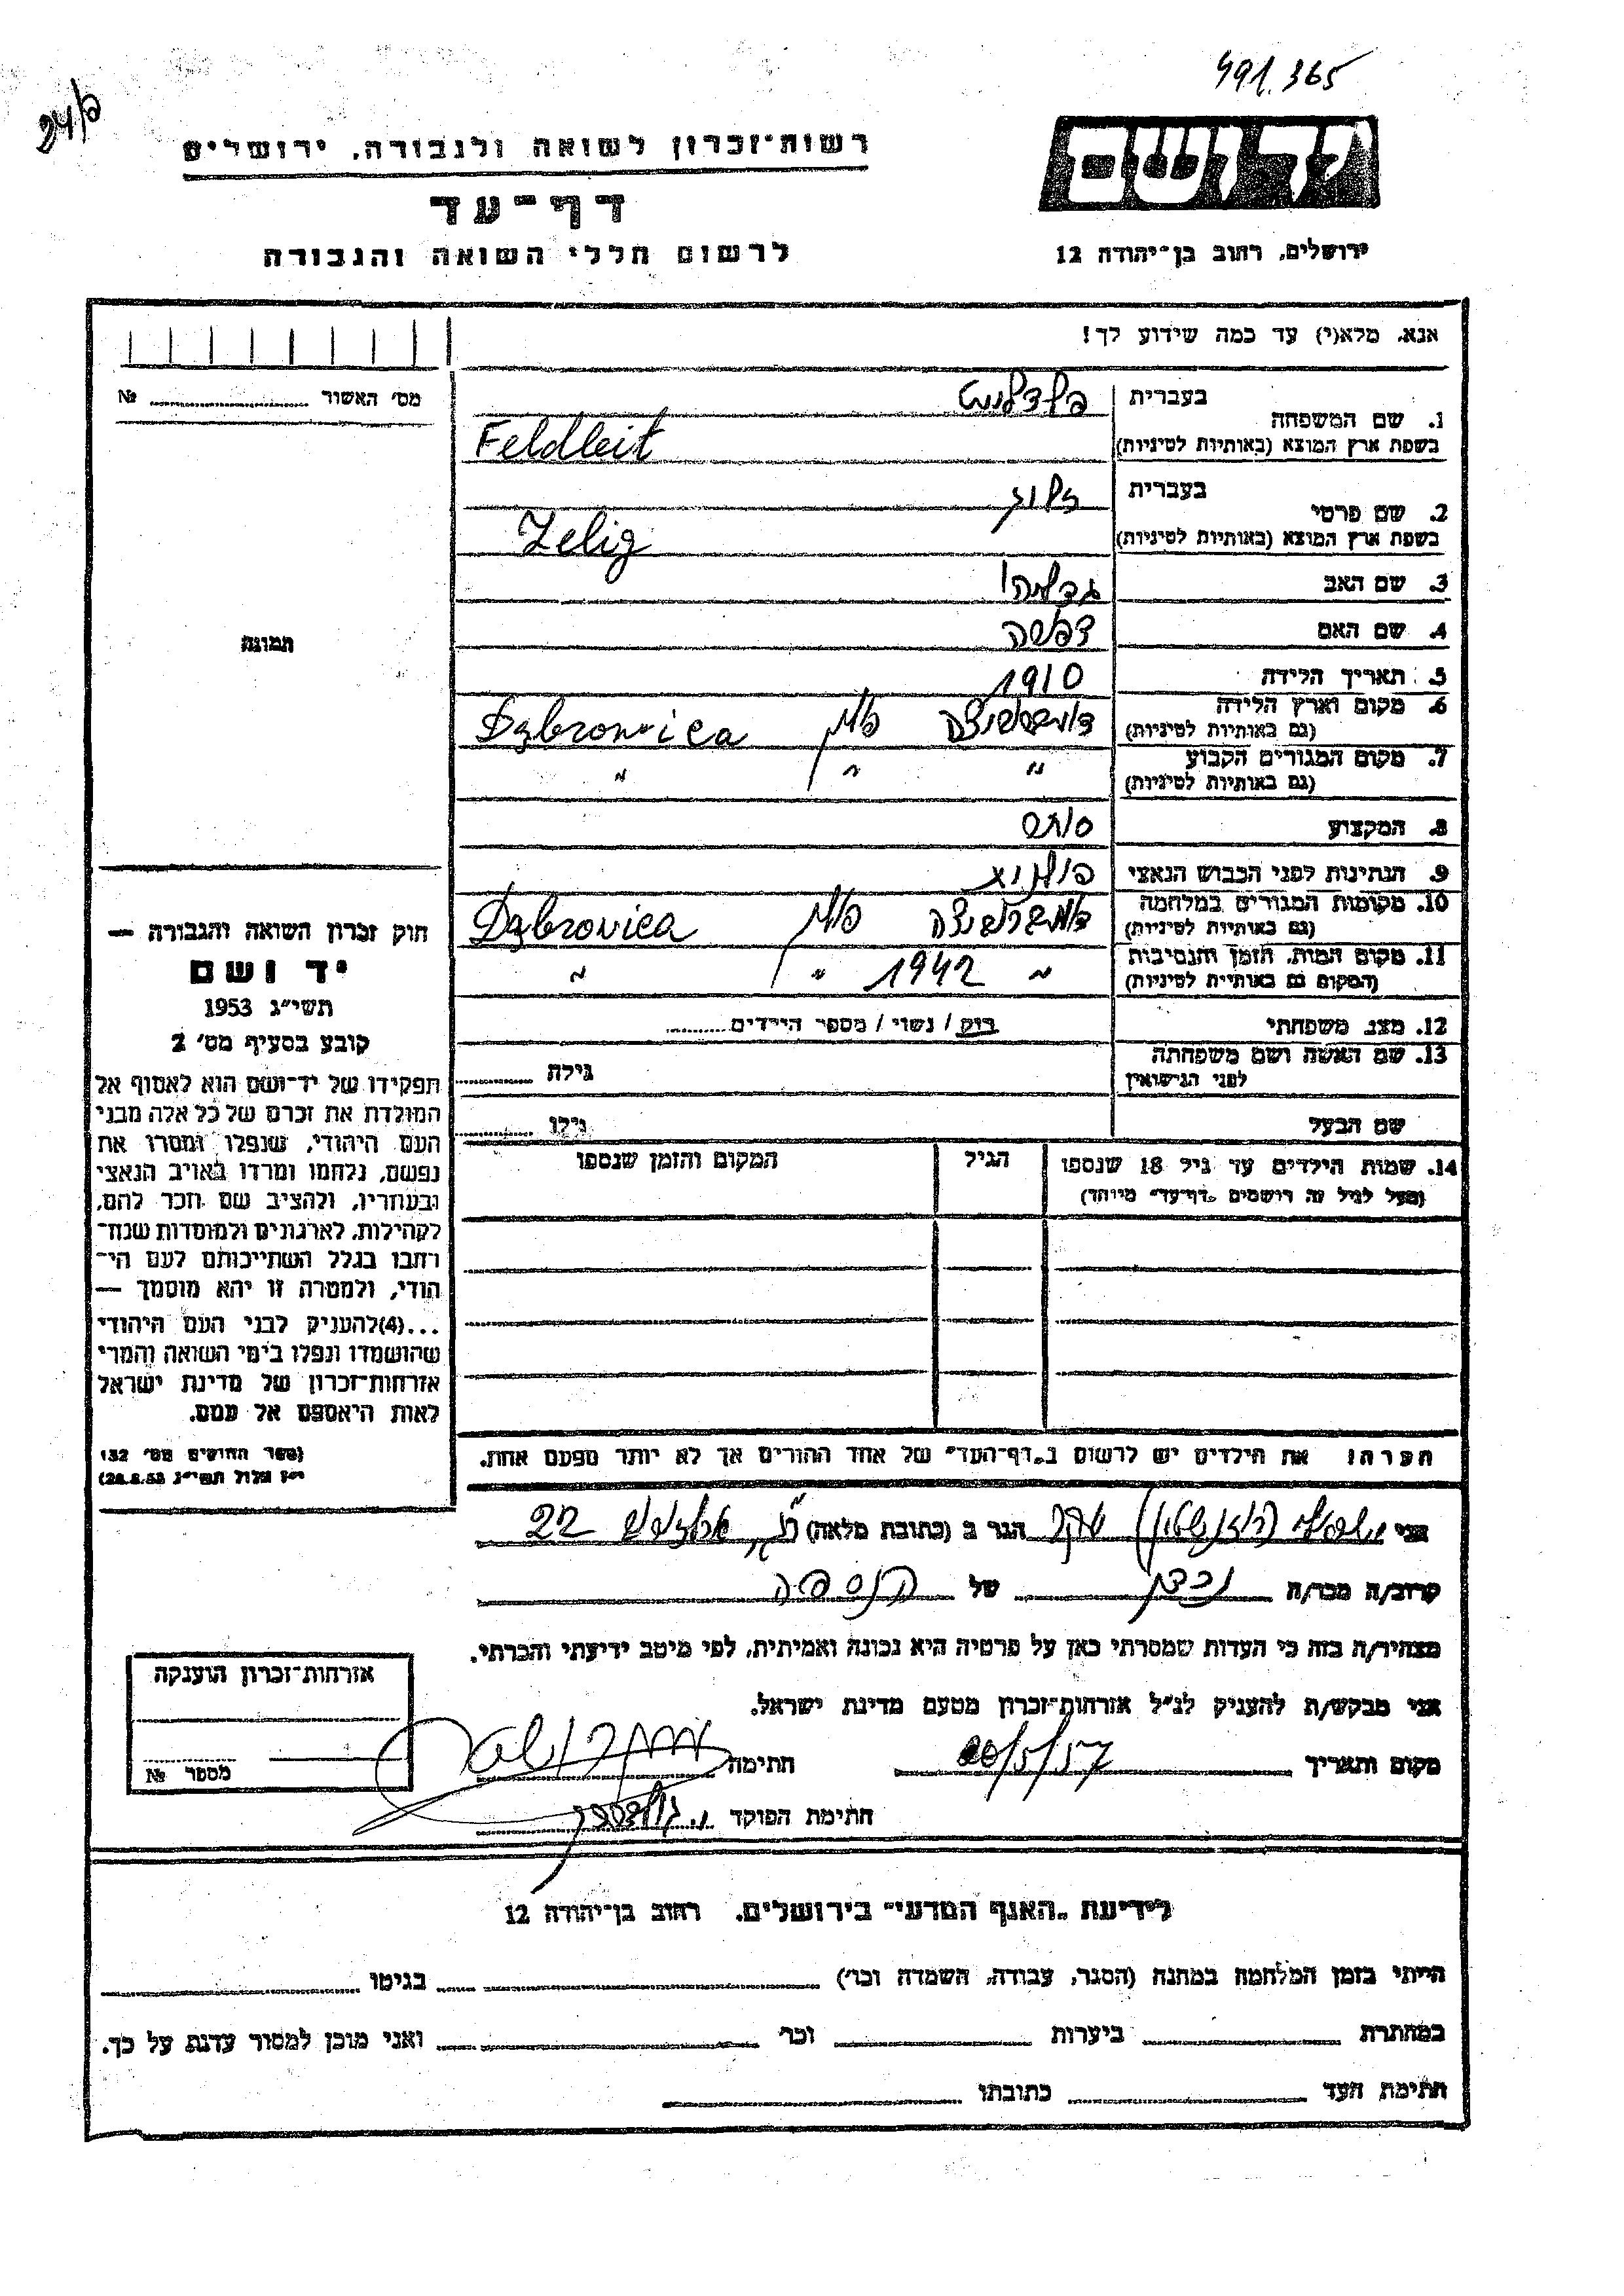 491.365
רשות־זכרון לשואה ולגבורה, ירושלים
דף־עד
לרשום חללי השואה והגבורה
יד ושם
ירושלים, רחוב בן־יהודה 12
אנא, מלא(י) עד כמה שידוע לך!
מס׳ האשור № 
1. שם המשפחה
בעברית פלדלייט
בשפת ארץ המוצא (באותיות לטיניות) Feldleit
2. שם פרטי
בעברית זליג
בשפת ארץ המוצא (באותיות לטיניות) Zelig
3. שם האב גדליהו
4. שם האם
5. תאריך הלידה 1910
6. מקום וארץ הלידה
(גם באותיות לטיניות) דומברוביצה פולין Dąbrowica
7. מקום המגורים הקבוע
(גם באותיות לטיניות) " " "
8. המקצוע סוחר
9. הנתינות לפני הכבוש הנאצי פולנית
10. מקומות המגורים במלחמה
(גם באותיות לטיניות) דומברוביצה פולין Dąbrovica
11. מקום המות, הזמן והנסיבות
(המקום גם באותיות לטיניות) " 1942 " "
12. מצב משפחתי רוק / נשוי / מספר הילדים
13. שם האשה ושם משפחתה
לפני הנישואין גילה
שם הבעל גילו
14. שמות הילדים עד גיל 18 שנספו
(מעל לגיל זה רושמים „דף־עד" מיוחד)
הגיל
המקום והזמן שנספו
תמונה
חוק זכרון השואה והגבורה —
יד ושם
תשי״ג 1953
קובע בסעיף מס׳ 2
תפקידו של יד־ושם הוא לאסוף אל
המולדת את זכרם של כל אלה מבני
העם היהודי, שנפלו ומסרו את
נפשם, נלחמו ומרדו באויב הנאצי
ובעוזריו, ולהציב שם וזכר להם,
לקהילות, לארגונים ולמוסדות שנח־
רבו בגלל השתייכותם לעם הי־
הודי, ולמטרה זו יהא מוסמך —
...(4)להעניק לבני העם היהודי
שהושמדו ונפלו בימי השואה והמרי
אזרחות־זכרון של מדינת ישראל
לאות היאספם אל עמם.
(ספר החוקים מס׳ 132
י״ז אלול תשי״ג 28.8.53)
הערה: את הילדים יש לרשום ב„דף־העד" של אחד ההורים אך לא יותר מפעם אחת.
אני הגר ב (כתובת מלאה) 22
קרוב/ה מכר/ה של
מצהיר/ה בזה כי העדות שמסרתי כאן על פרטיה היא נכונה ואמיתית, לפי מיטב ידיעתי והכרתי.
אני מבקש/ת להעניק לנ״ל אזרחות־זכרון מטעם מדינת ישראל.
מקום ותאריך 20/5/57 חתימה
חתימת הפוקד
אזרחות־זכרון הוענקה
מספר №
לידיעת „האגף המדעי" בירושלים, רחוב בן־יהודה 12
הייתי בזמן המלחמה במחנה (הסגר, עבודה, השמדה וכו׳) בגיטו
במחתרת ביערות וכו׳ ואני מוכן למסור עדות על כך.
חתימת העד כתובתו